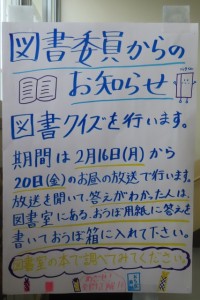 図書委員からの
お知らせ
図書クイズを行います。
期間は2月16日(月)から
20日(金)のお昼の放送で行います。
放送を聞いて、答えがわかった人は、
図書室にある、おうぼ用紙に答えを
書いておうぼ箱に入れて下さい。
図書室の本で調べてみてください。